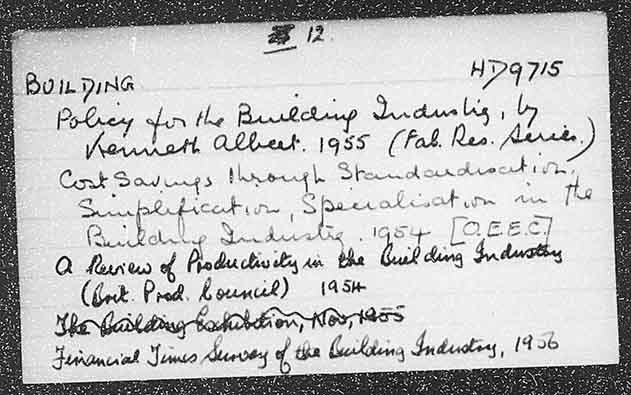 12.
BUILDING HD9715
Policy for the Building Industry, by
Kenneth Albert. 1955 (Fab. Res. Series.)
Cost Savings through Standardisation,
Simplification, Specialisation in the
Building Industry. 1954 [O.E.E.C.]
A Review of Productivity in the Building Industry
(Brit. Prod. Council) 1954
The Building Exhibition, Nov, 1955
Financial Times Survey of the Building Industry, 1956